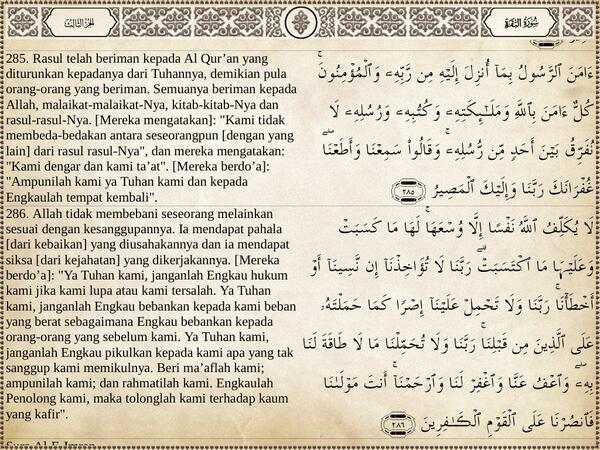 الجزء الثالث
سورة البقرة
285. Rasul telah beriman kepada Al Qur’an yang
diturunkan kepadanya dari Tuhannya, demikian pula
orang-orang yang beriman. Semuanya beriman kepada
Allah, malaikat-malaikat-Nya, kitab-kitab-Nya dan
rasul-rasul-Nya. [Mereka mengatakan]: "Kami tidak
membeda-bedakan antara seseorangpun [dengan yang
lain] dari rasul rasul-Nya", dan mereka mengatakan:
"Kami dengar dan kami ta’at". [Mereka berdo’a]:
"Ampunilah kami ya Tuhan kami dan kepada
Engkaulah tempat kembali".
ءَامَنَ ٱلرَّسُولُ بِمَآ أُنزِلَ إِلَيْهِ مِن رَّبِّهِۦ وَٱلْمُؤْمِنُونَ ۚ
كُلٌّ ءَامَنَ بِٱللَّهِ وَمَلَـٰٓئِكَتِهِۦ وَكُتُبِهِۦ وَرُسُلِهِۦ لَا
نُفَرِّقُ بَيْنَ أَحَدٍ مِّن رُّسُلِهِۦ ۚ وَقَالُوا۟ سَمِعْنَا وَأَطَعْنَا ۖ
غُفْرَانَكَ رَبَّنَا وَإِلَيْكَ ٱلْمَصِيرُ ٢٨٥
286. Allah tidak membebani seseorang melainkan
sesuai dengan kesanggupannya. Ia mendapat pahala
[dari kebaikan] yang diusahakannya dan ia mendapat
siksa [dari kejahatan] yang dikerjakannya. [Mereka
berdo’a]: "Ya Tuhan kami, janganlah Engkau hukum
kami jika kami lupa atau kami tersalah. Ya Tuhan
kami, janganlah Engkau bebankan kepada kami beban
yang berat sebagaimana Engkau bebankan kepada
orang-orang yang sebelum kami. Ya Tuhan kami,
janganlah Engkau pikulkan kepada kami apa yang tak
sanggup kami memikulnya. Beri ma’aflah kami;
ampunilah kami; dan rahmatilah kami. Engkaulah
Penolong kami, maka tolonglah kami terhadap kaum
yang kafir".
لَا يُكَلِّفُ ٱللَّهُ نَفْسًا إِلَّا وُسْعَهَا ۚ لَهَا مَا كَسَبَتْ
وَعَلَيْهَا مَا ٱكْتَسَبَتْ ۗ رَبَّنَا لَا تُؤَاخِذْنَآ إِن نَّسِينَآ أَوْ
أَخْطَأْنَا ۚ رَبَّنَا وَلَا تَحْمِلْ عَلَيْنَآ إِصْرًا كَمَا حَمَلْتَهُۥ
عَلَى ٱلَّذِينَ مِن قَبْلِنَا ۚ رَبَّنَا وَلَا تُحَمِّلْنَا مَا لَا طَاقَةَ لَنَا
بِهِۦ ۖ وَٱعْفُ عَنَّا وَٱغْفِرْ لَنَا وَٱرْحَمْنَآ ۚ أَنتَ مَوْلَىٰنَا
فَٱنصُرْنَا عَلَى ٱلْقَوْمِ ٱلْكَـٰفِرِينَ ٢٨٦